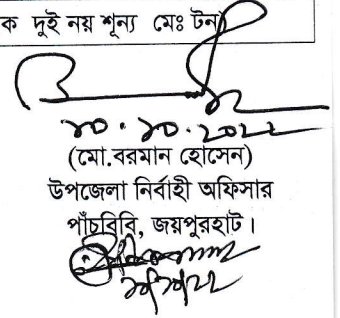 ক দুই নয় শূন্য মেঃ টন)
২০.১০.২০২২
(মো.বরমান হোসেন)
উপজেলা নির্বাহী অফিসার
পাঁচবিবি, জয়পুরহাট।